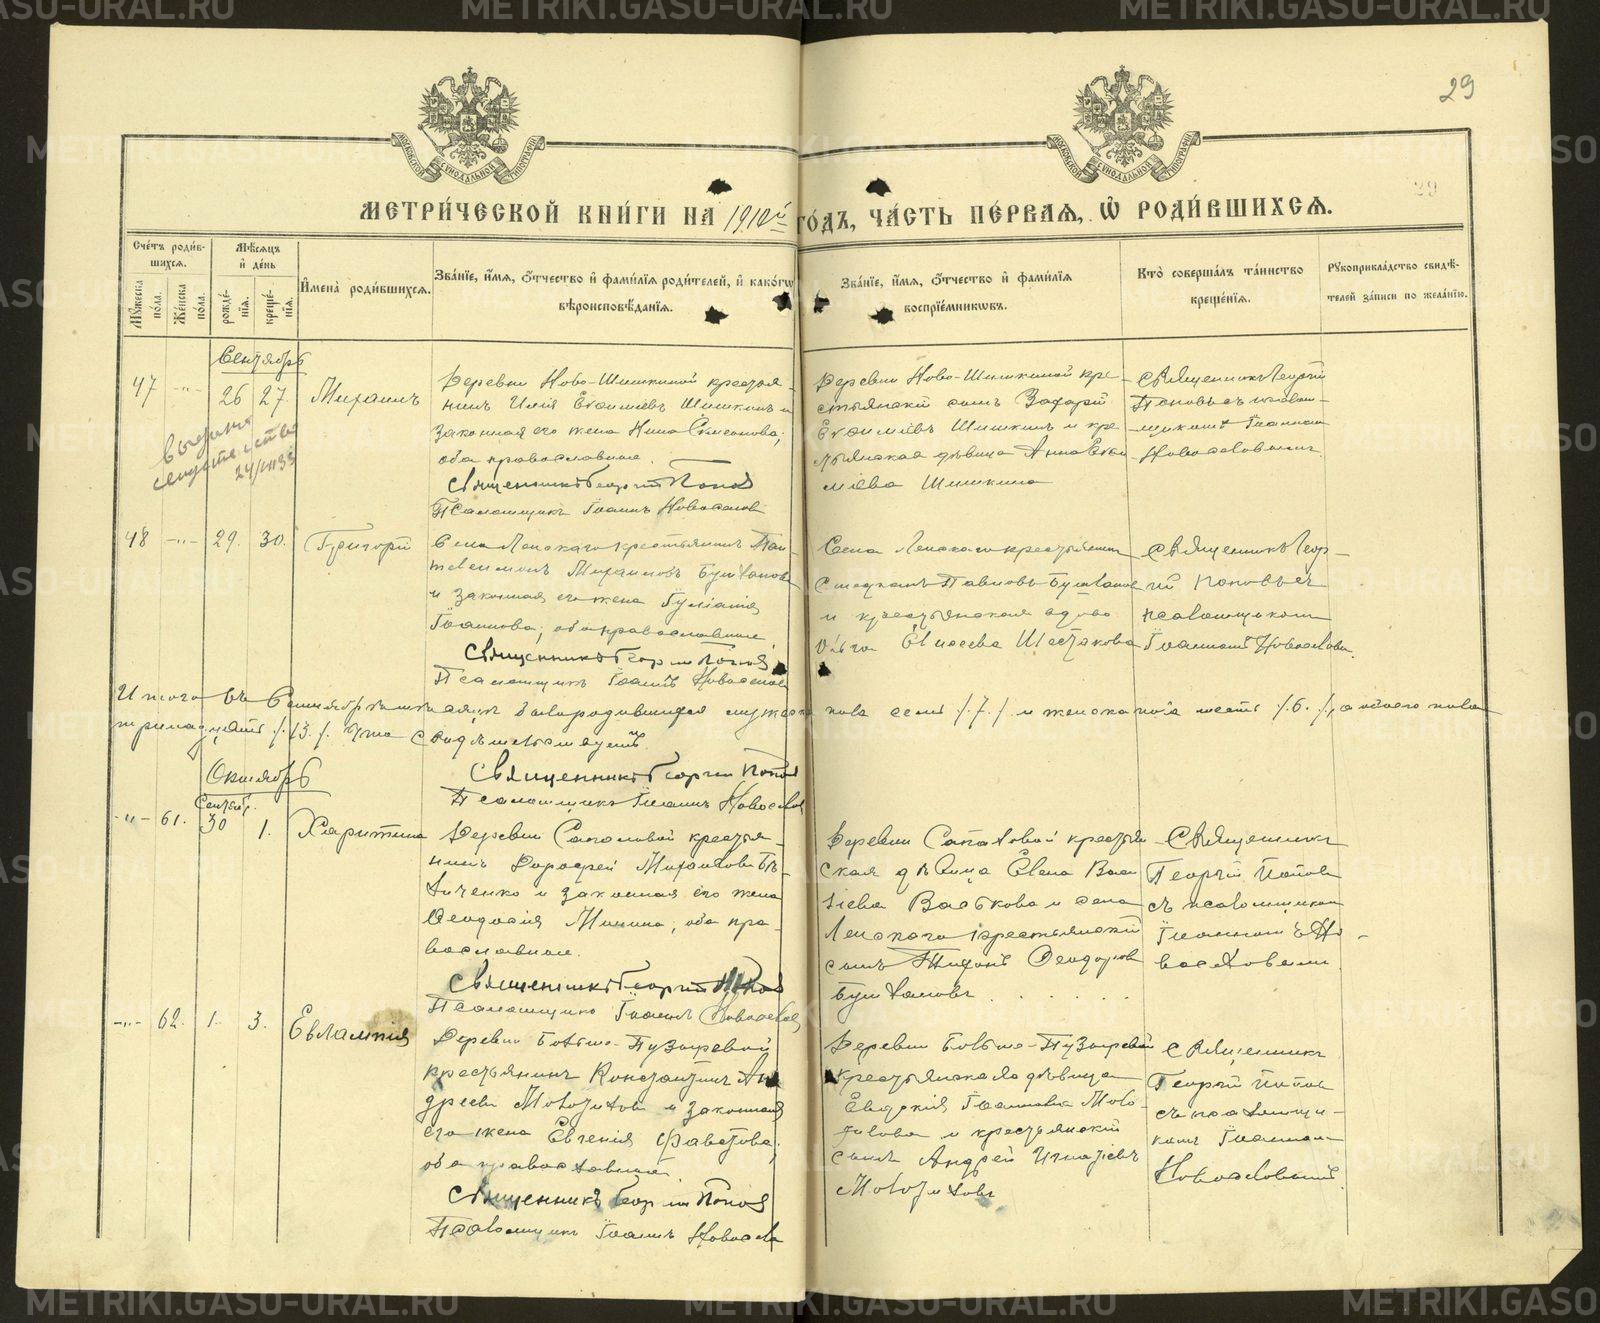 29
МОСКОВСКОЙ СѴНОДАЛЬНОЙ ТИПОГРАФІИ
МОСКОВСКОЙ СѴНОДАЛЬНОЙ ТИПОГРАФІИ
29
МЕТРИ́ЧЕСКОЙ КНИ́ГИ НА 1910й ГО́ДЪ, ЧА́СТЬ ПЕ́РВАѦ, Ѡ РОДИ́ВШИХСѦ.
Сче́тъ роди́в-
шихсѧ.
Мѣ́сѧцъ
и҆ де́нь
Мꙋ́жеска
по́ла.
Же́нска
по́ла.
рожде́-
нїѧ.
креще́-
нїѧ.
И҆мена̀ роди́вшихсѧ.
Зва́нїе, и҆́мѧ, ѻ҆́тчество и҆ фами́лїѧ роди́телей, и҆ како́гѡ
вѣроисповѣ́данїѧ.
Зва́нїе, и҆́мѧ, ѻ҆́тчество и҆ фами́лїѧ
воспрїе́мникѡвъ.
Кто̀ соверша́лъ та́инство
креще́нїѧ.
Рꙋкоприкла́дство свидѣ́-
телей за́писи по жела́нїю.
Сентябрь
47 -"- 26 27. Михаилъ
Деревни Ново-Шишкиной крестья-
нинъ Илія Евѳиміевъ Шишкинъ и
законная его жена Нина Симеонова;
оба православные.
Священникъ Георгій Поповъ
Псаломщикъ Іоаннъ Новоселов
Деревни Ново-Шишкиной кре-
стьянскій сынъ Захарій
Евѳиміевъ Шишкинъ и кре-
стьянская дѣвица Анна Евѳи-
міева Шишкина
Священникъ Георгій
Поповъ съ псалом-
щикомъ Іоанномъ
Новоселовымъ.
выдано
свидетельство
24/VII 33
48 -"- 29. 30. Григорій
Села Ленскаго крестьянинъ Пан-
телеимонъ Михаиловъ Булановъ
и законная его жена Іуліанія
Іоаннова; оба православные.
Священникъ Георгій Поповъ
Псаломщикъ Іоаннъ Новоселов
Села Ленскаго крестьянин
Стефанъ Павловъ Булановъ
и крестьянская вдова
Ольга Елисеева Шестакова
Священникъ Геор-
гій Поповъ съ
псаломщикомъ
Іоанномъ Новоселовым.
Итого въ Сентябрѣ мѣсяцѣ было родившихся мужска пола семь /.7./ и женска пола шесть /.6./, а обоего пола
тринадцать /.13./. Что свидѣтельствуемъ.
Священникъ Георгій Поповъ
Псаломщикъ Іоаннъ Новоселов
Октябрь
Сентяб.
-"- 61. 30 1. Харитина
Деревни Сапаловой крестья-
нинъ Дороѳей Михаиловъ Бѣ-
личенко и законная его жена
Ѳеодосія Минина; оба пра-
вославные.
Священникъ Георгій Поповъ
Псаломщикъ Іоаннъ Новоселов
Деревни Сапаловой крестьян-
ская дѣвица Елена Васи-
ліева Васькова и села
Ленскаго крестьянскій
сынъ Тихонъ Ѳеодоров
Булановъ.
Священникъ
Георгій Поповъ
съ псаломщиком
Іоанномъ Но-
воселовымъ.
-"- 62. 1. 3. Евлампія
Деревни Больше-Пузыревой
крестьянинъ Константинъ Ан-
дреевъ Молотиловъ и законная
его жена Евгенія Фавстова;
оба православные
Священникъ Георгій Поповъ
Псаломщикъ Іоаннъ Новоселов
Деревни Больше-Пузыревой
крестьянская дѣвица
Евдокія Іоаннова Моло-
тилова и крестьянскій
сынъ Андрей Игнатіевъ
Молотиловъ
Священникъ
Георгій Поповъ
съ псаломщи-
комъ Іоанном
Новоселовымъ
METRIKI.GASO-URAL.RU